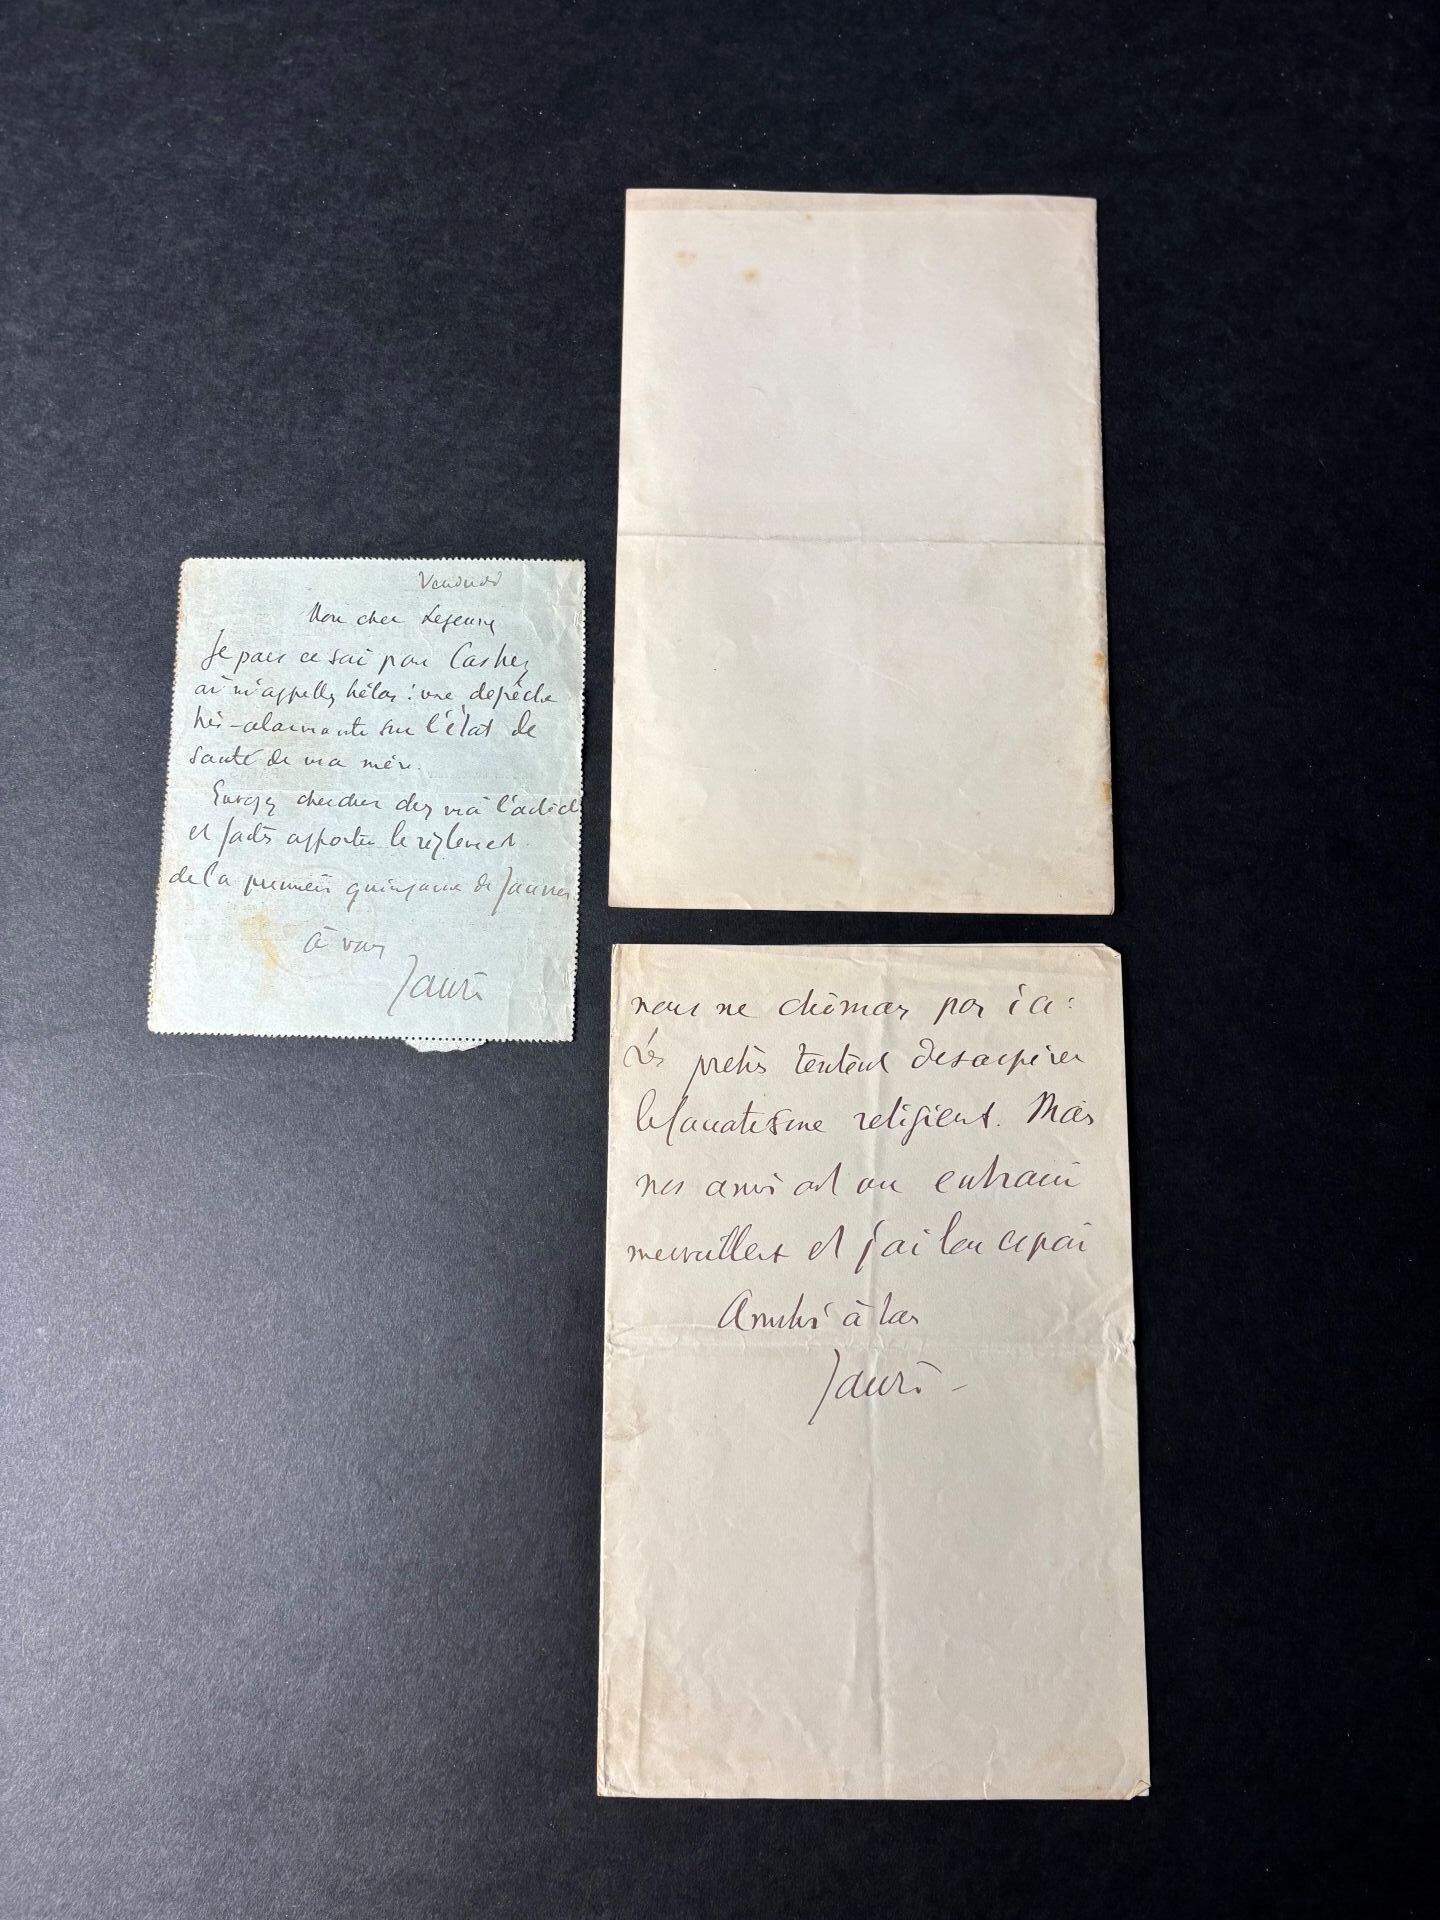 Vendredi
Mon cher Lejeune
Je pars ce soir pour Castres
où m'appelle, hélas! une dépêche
très-alarmante sur l'état de
santé de ma mère.
Envoyez chercher chez moi l'article
et faites apporter le règlement
de la première quinzaine de Janvier
à vous
Jaurès
nous ne chômons pas ici:
Les prêtres tentent d'exaspérer
le fanatisme religieux. Mais
nos amis ont un entrain
merveilleux et j'ai bon espoir
Amitiés à tous
Jaurès -